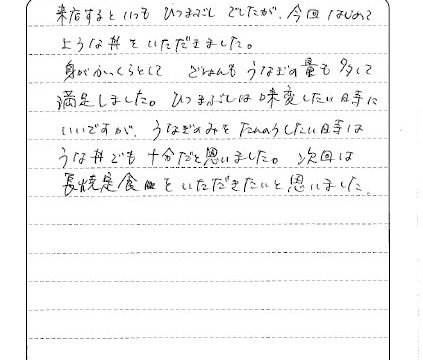 来店するといつも ひつまぶし でしたが、今回 はじめて
ような丼をいただきました。
身がふっくらとして ごはんも うなぎの量も多くて
満足しました。ひつまぶしは味変したい時に
いいですが、うなぎのみをたんのうしたい時は
うな丼でも十分だと思いました。次回は
長焼定食 をいただきたいと思いました。